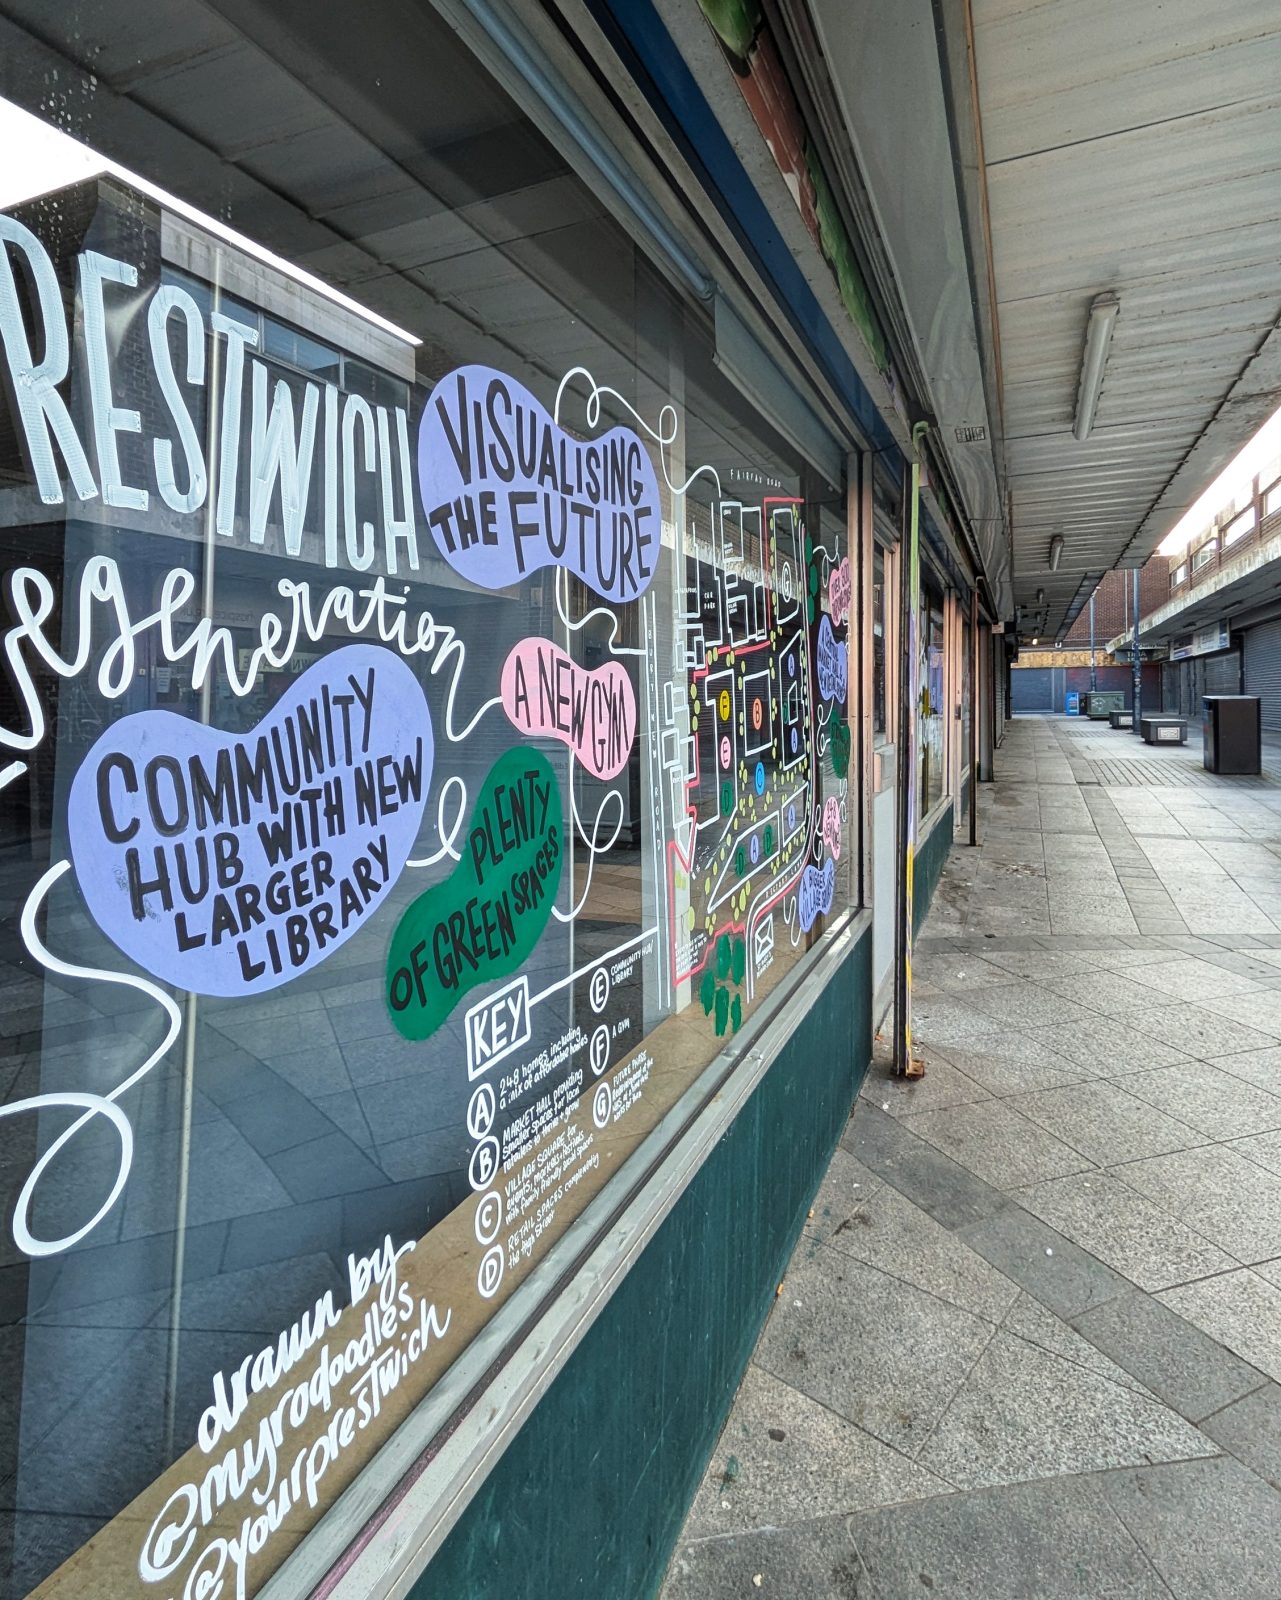 RESTWICH
regeneration
VISUALISING
THE FUTURE
COMMUNITY
HUB WITH NEW
LARGER
LIBRARY
A NEW GYM
PLENTY
OF GREEN SPACES
KEY
A 248 homes, including
a mix of affordable homes
B MARKET HALL providing
smaller spaces for local
retailers to thrive + grow
C VILLAGE SQUARE for
events, markets + festivals
with family friendly social spaces
D RETAIL SPACES complementing
the high street
E COMMUNITY HUB/
LIBRARY
F A GYM
G FUTURE PHASE
FAIRFAX ROAD
CAR
PARK
BURY NEW ROAD
G
F
B
E
C
D
A
A
D
A
D
A BIGGER
VILLAGE SQUARE
drawn by
@myrodoodles
@yourprestwich